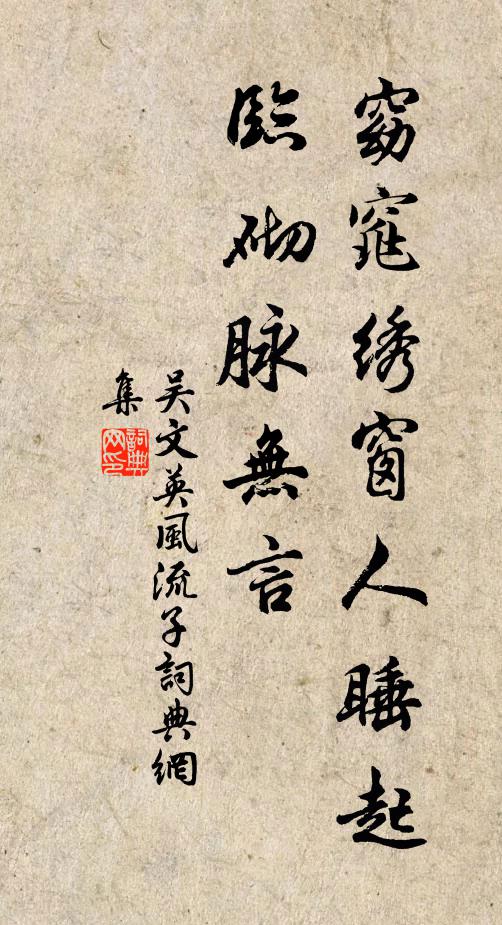 窈窕绣窗人睡起
臨砌脉無言
吴文英風流子詞典網
集
詞典
网印